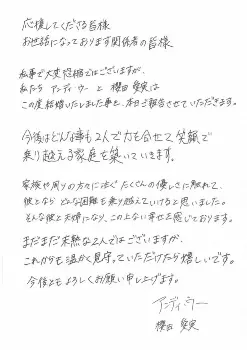 応援してくださる皆様
お世話になっております関係者の皆様
私事で大変恐縮ではございますが、
私たち アンディ・ウー と 櫻田 愛実は
この度結婚いたしました事を、本日ご報告させていただきます。
今後はどんな事も2人で力を合せて笑顔で
乗り越える家庭を築いていきます。
家族や周りの方々に注ぐたくさんの優しさに触れて、
彼となら どんな困難も乗り越えていけると思いました。
そんな彼と夫婦になり、この上ない幸せを感じております。
まだまだ未熟な2人ではございますが、
これからも温かく見守っていただけたら嬉しいです。
今後ともよろしくお願い申し上げます。
アンディ・ウー
櫻田 愛実